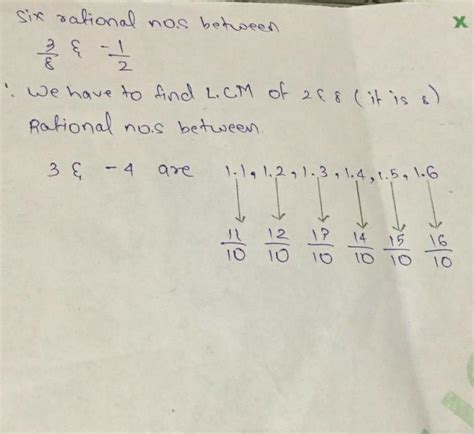 Six rational no.s between
3/8 & -1/2
∴ We have to find L.C.M of 2 & 8 (it is 8)
Rational no.s between
3 & -4 are 1.1, 1.2, 1.3, 1.4, 1.5, 1.6
11/10 12/10 13/10 14/10 15/10 16/10